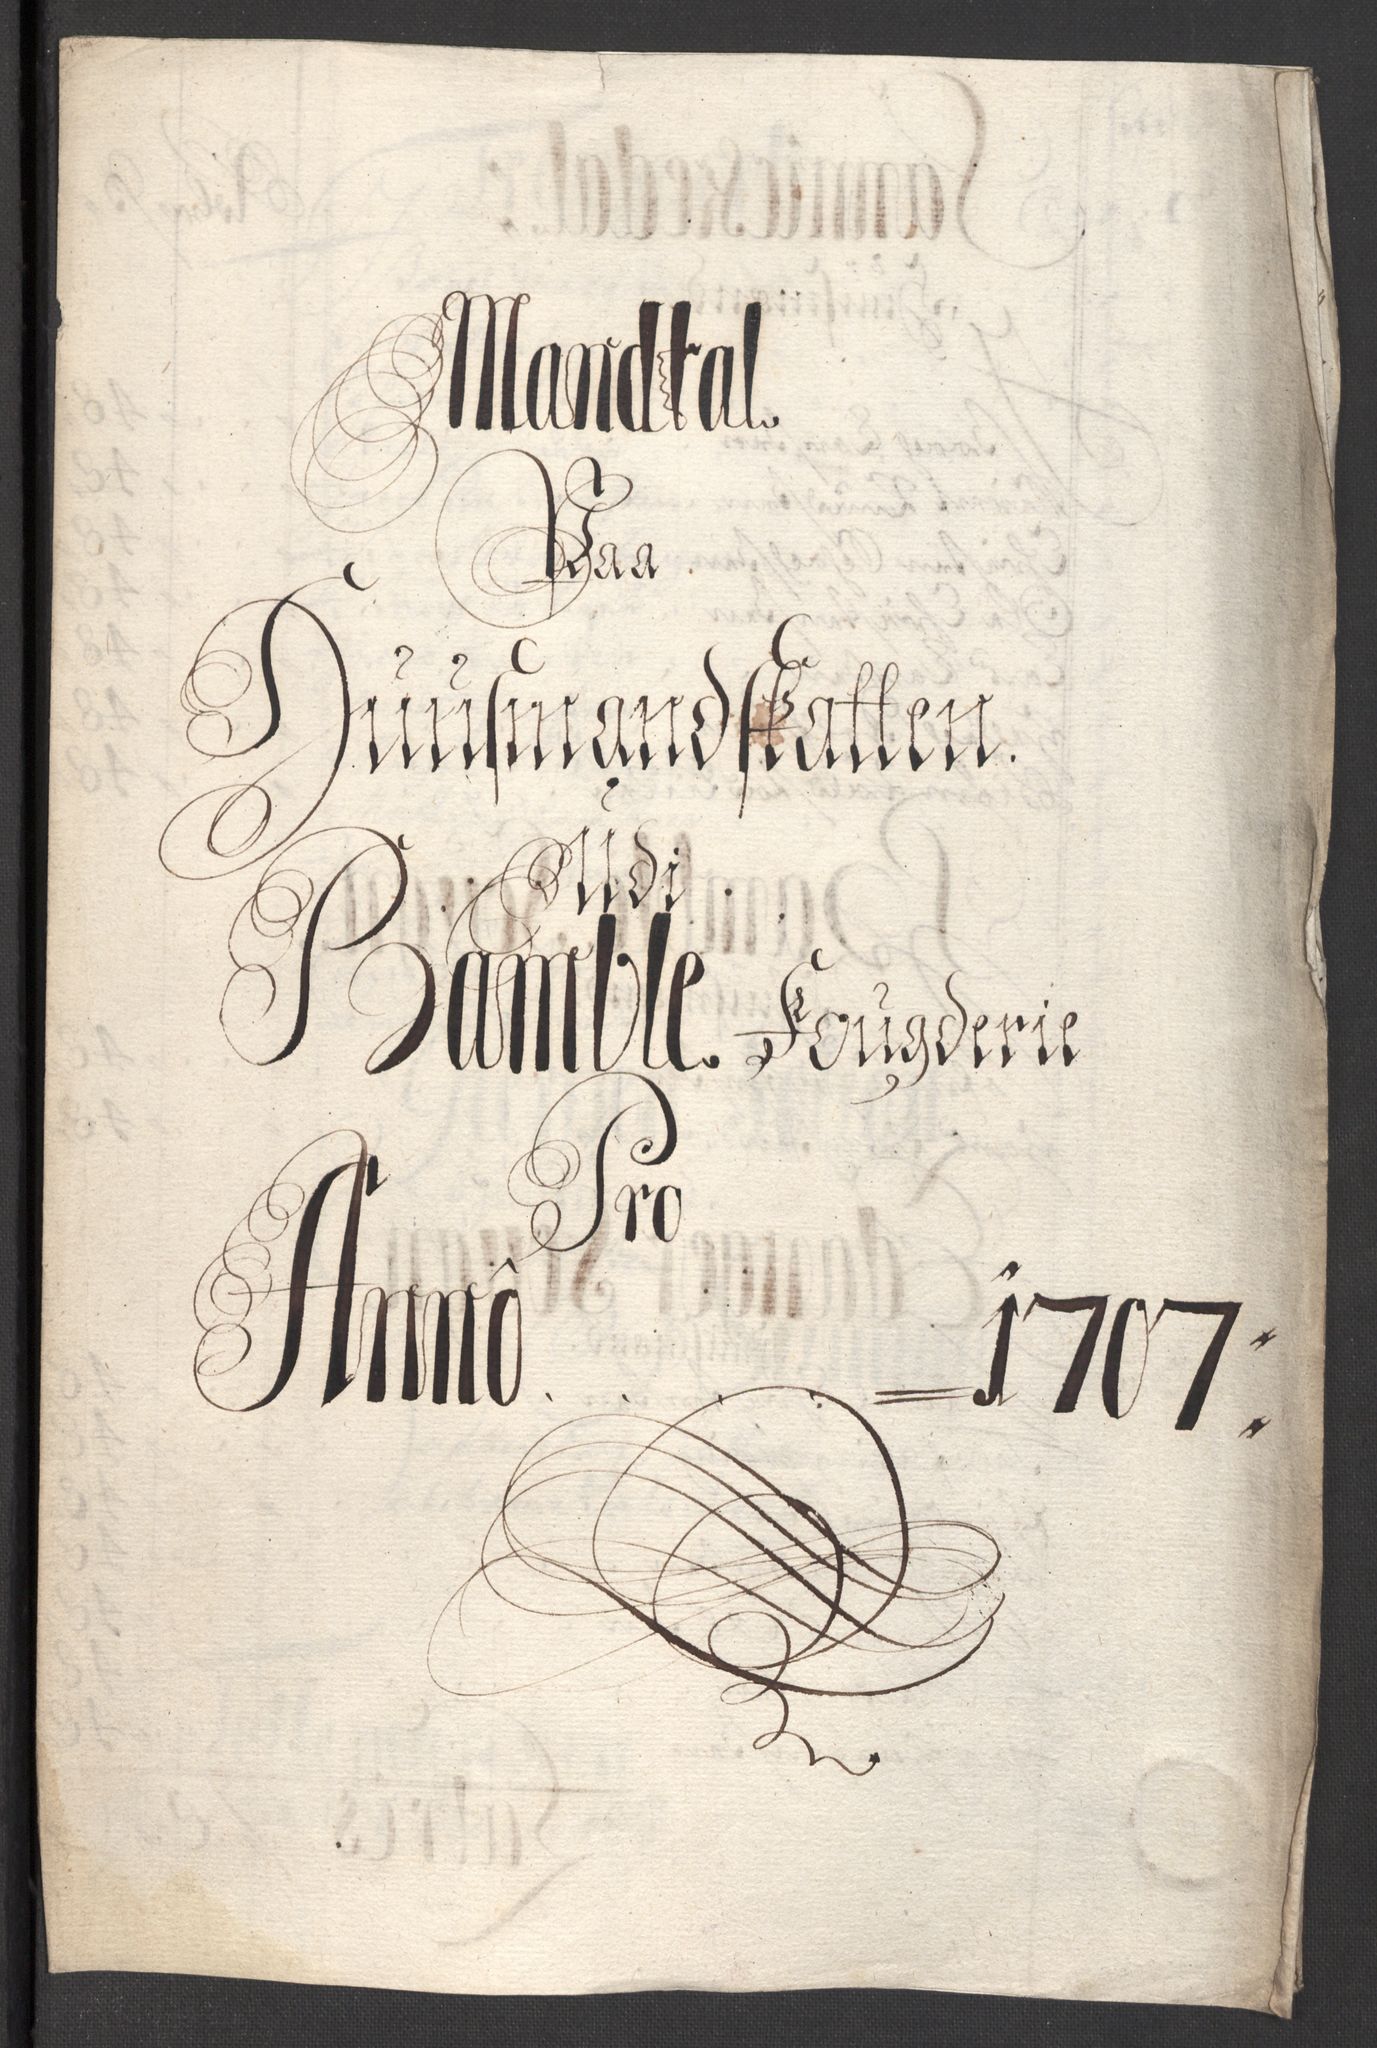 Mandtal.
Paa
Huusmandskatten.
Udi
Bamble Fougderie
Pro
Anno. = 1707: